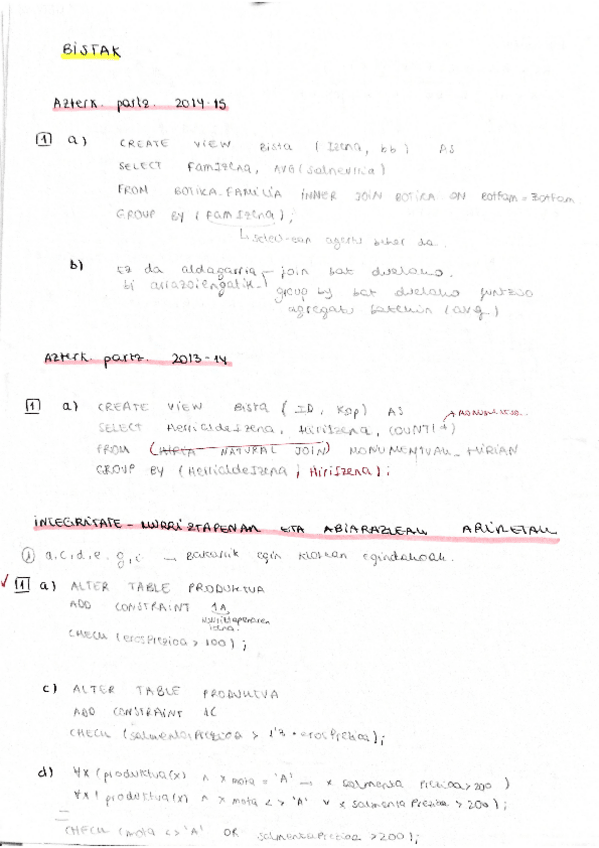 BISTAK
Azterk. partz. 2014-15
1 a) CREATE VIEW Bista (Izena, bb) AS
SELECT FamIzena, AVG(Salneurria)
FROM BOTIKA-FAMILIA INNER JOIN BOTIKA ON BotFam = BotFam
GROUP BY (FamIzena);
↳ select-ean agertu behar da.
b) Ez da aldagarria → join bat duelako.
bi arrazoiengatik. group by bat duelako funtzio
agregatu batekin (avg.)
Azterk. partz. 2013-14
1 a) CREATE VIEW Bista (ID, Kop) AS
SELECT HerrialdeIzena, HiriIzena, COUNT(*)
FROM (HIRIA NATURAL JOIN) MONUMENTUAK_HIRIAN
GROUP BY (HerrialdeIzena, HiriIzena);
INTEGRITATE-MURRIZTAPENAK ETA ABIARAZLEAK ARIKETAK
a, c, d, e, g, i → Bakarrik egin klasean egindakoak.
✓ 1 a) ALTER TABLE PRODUKTUA
ADD CONSTRAINT 1A
murriztapenaren
izena
CHECK (erosPrezioa > 100);
c) ALTER TABLE PRODUKTUA
ADD CONSTRAINT 1C
CHECK (salmentaPrezioa > 1'3 * erosPrezioa);
d) ∀x (produktua(x) ∧ x mota = 'A' → x salmenta Prezioa > 200)
∀x (produktua(x) ∧ x mota <> 'A' ∨ x salmenta Prezioa > 200);
CHECK (mota <> 'A' OR salmentaPrezioa > 200);